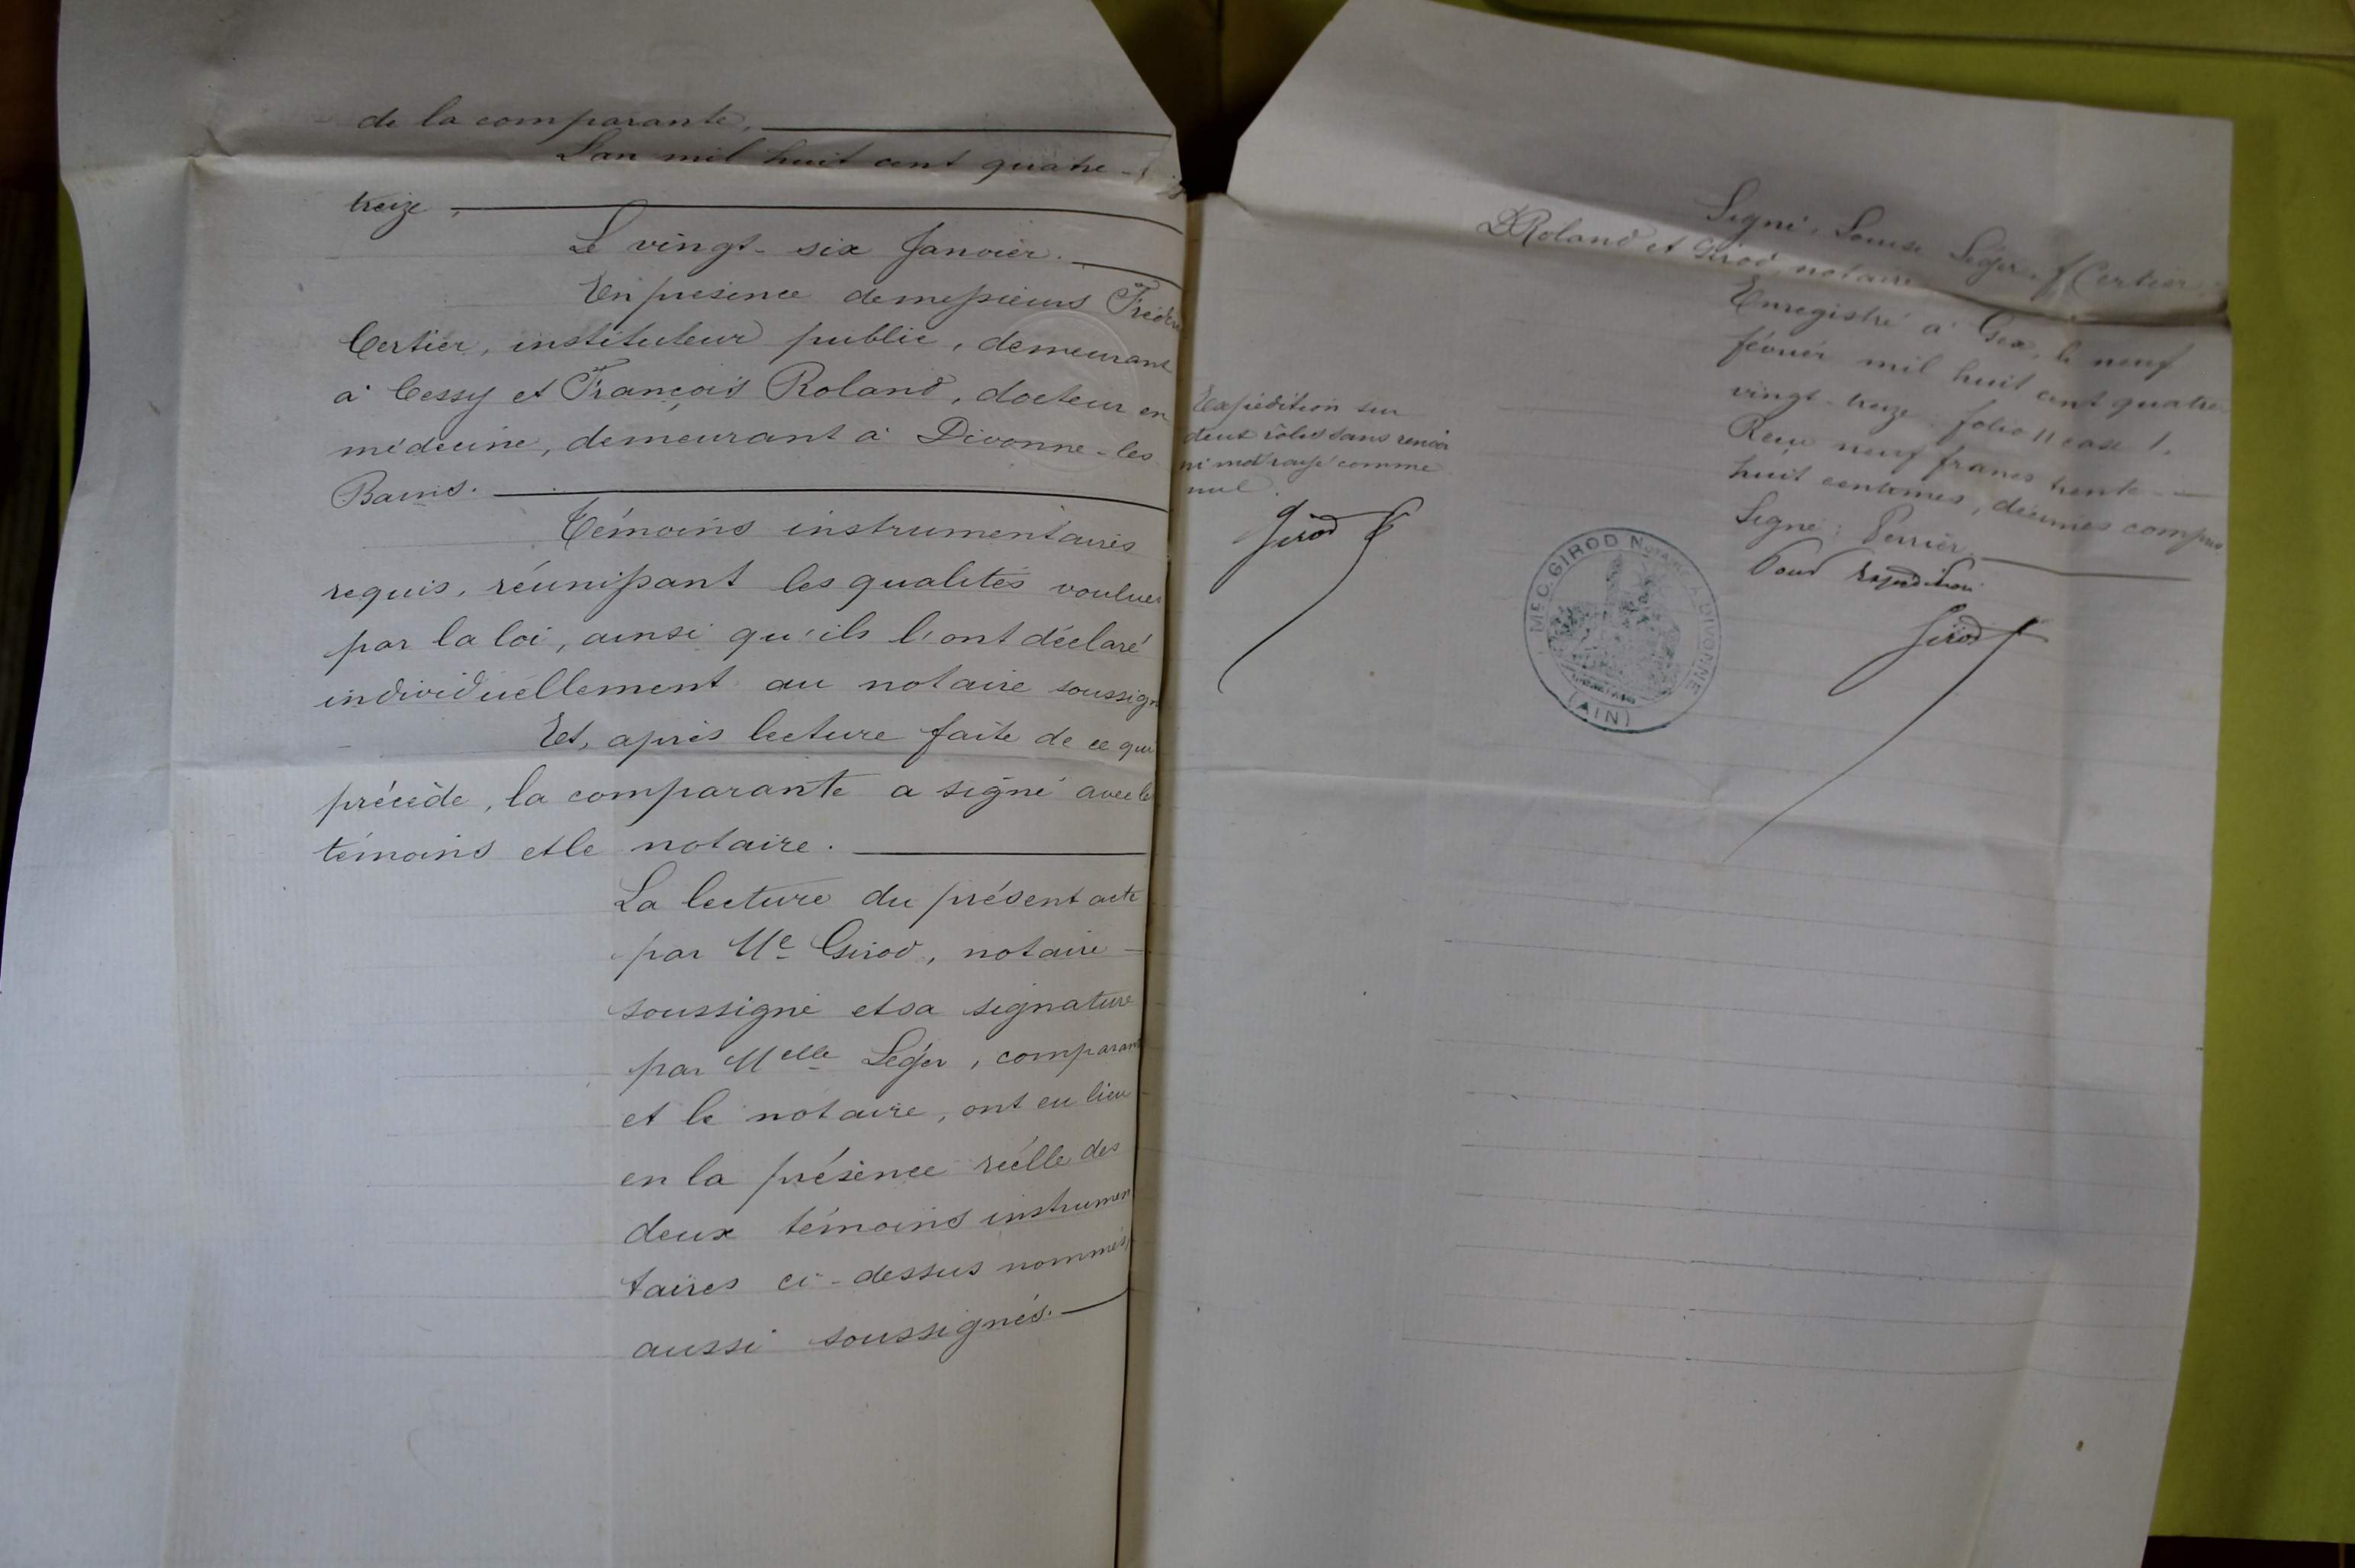 de la comparante,
L'an mil huit cent quatre-
treize,
Le vingt-six Janvier.
En présence de messieurs Fréder
Certier, instituteur public, demeurant
à Cessy et François Roland, docteur en
médecine, demeurant à Divonne-les
Bains.
Témoins instrumentaires
requis, réunissant les qualités voulues
par la loi, ainsi qu'ils l'ont déclaré
individuellement au notaire soussign
Et, après lecture faite de ce qui
précède, la comparante a signé avec le
témoins et le notaire.
La lecture du présent acte
par Me Girod, notaire
soussigné et sa signature
par Melle Léger, comparant
et le notaire, ont eu lieu
en la présence réelle des
deux témoins instrumen
taires ci-dessus nommés,
aussi soussignés.
Expédition sur
deux rôles sans renvoi
ni mot rayé comme
nul.
Girod
Signé: Louise Léger, f Certier,
D Roland et Girod, notaire
Enregistré à Gex, le neuf
février mil huit cent quatre
vingt-treize folio 11 case 1.
Reçu neuf francs trente-
huit centimes, décimes compris
Signé: Perrier
Pour expédition
Girod
Me C. GIROD NOTAIRE A DIVONNE
(AIN)